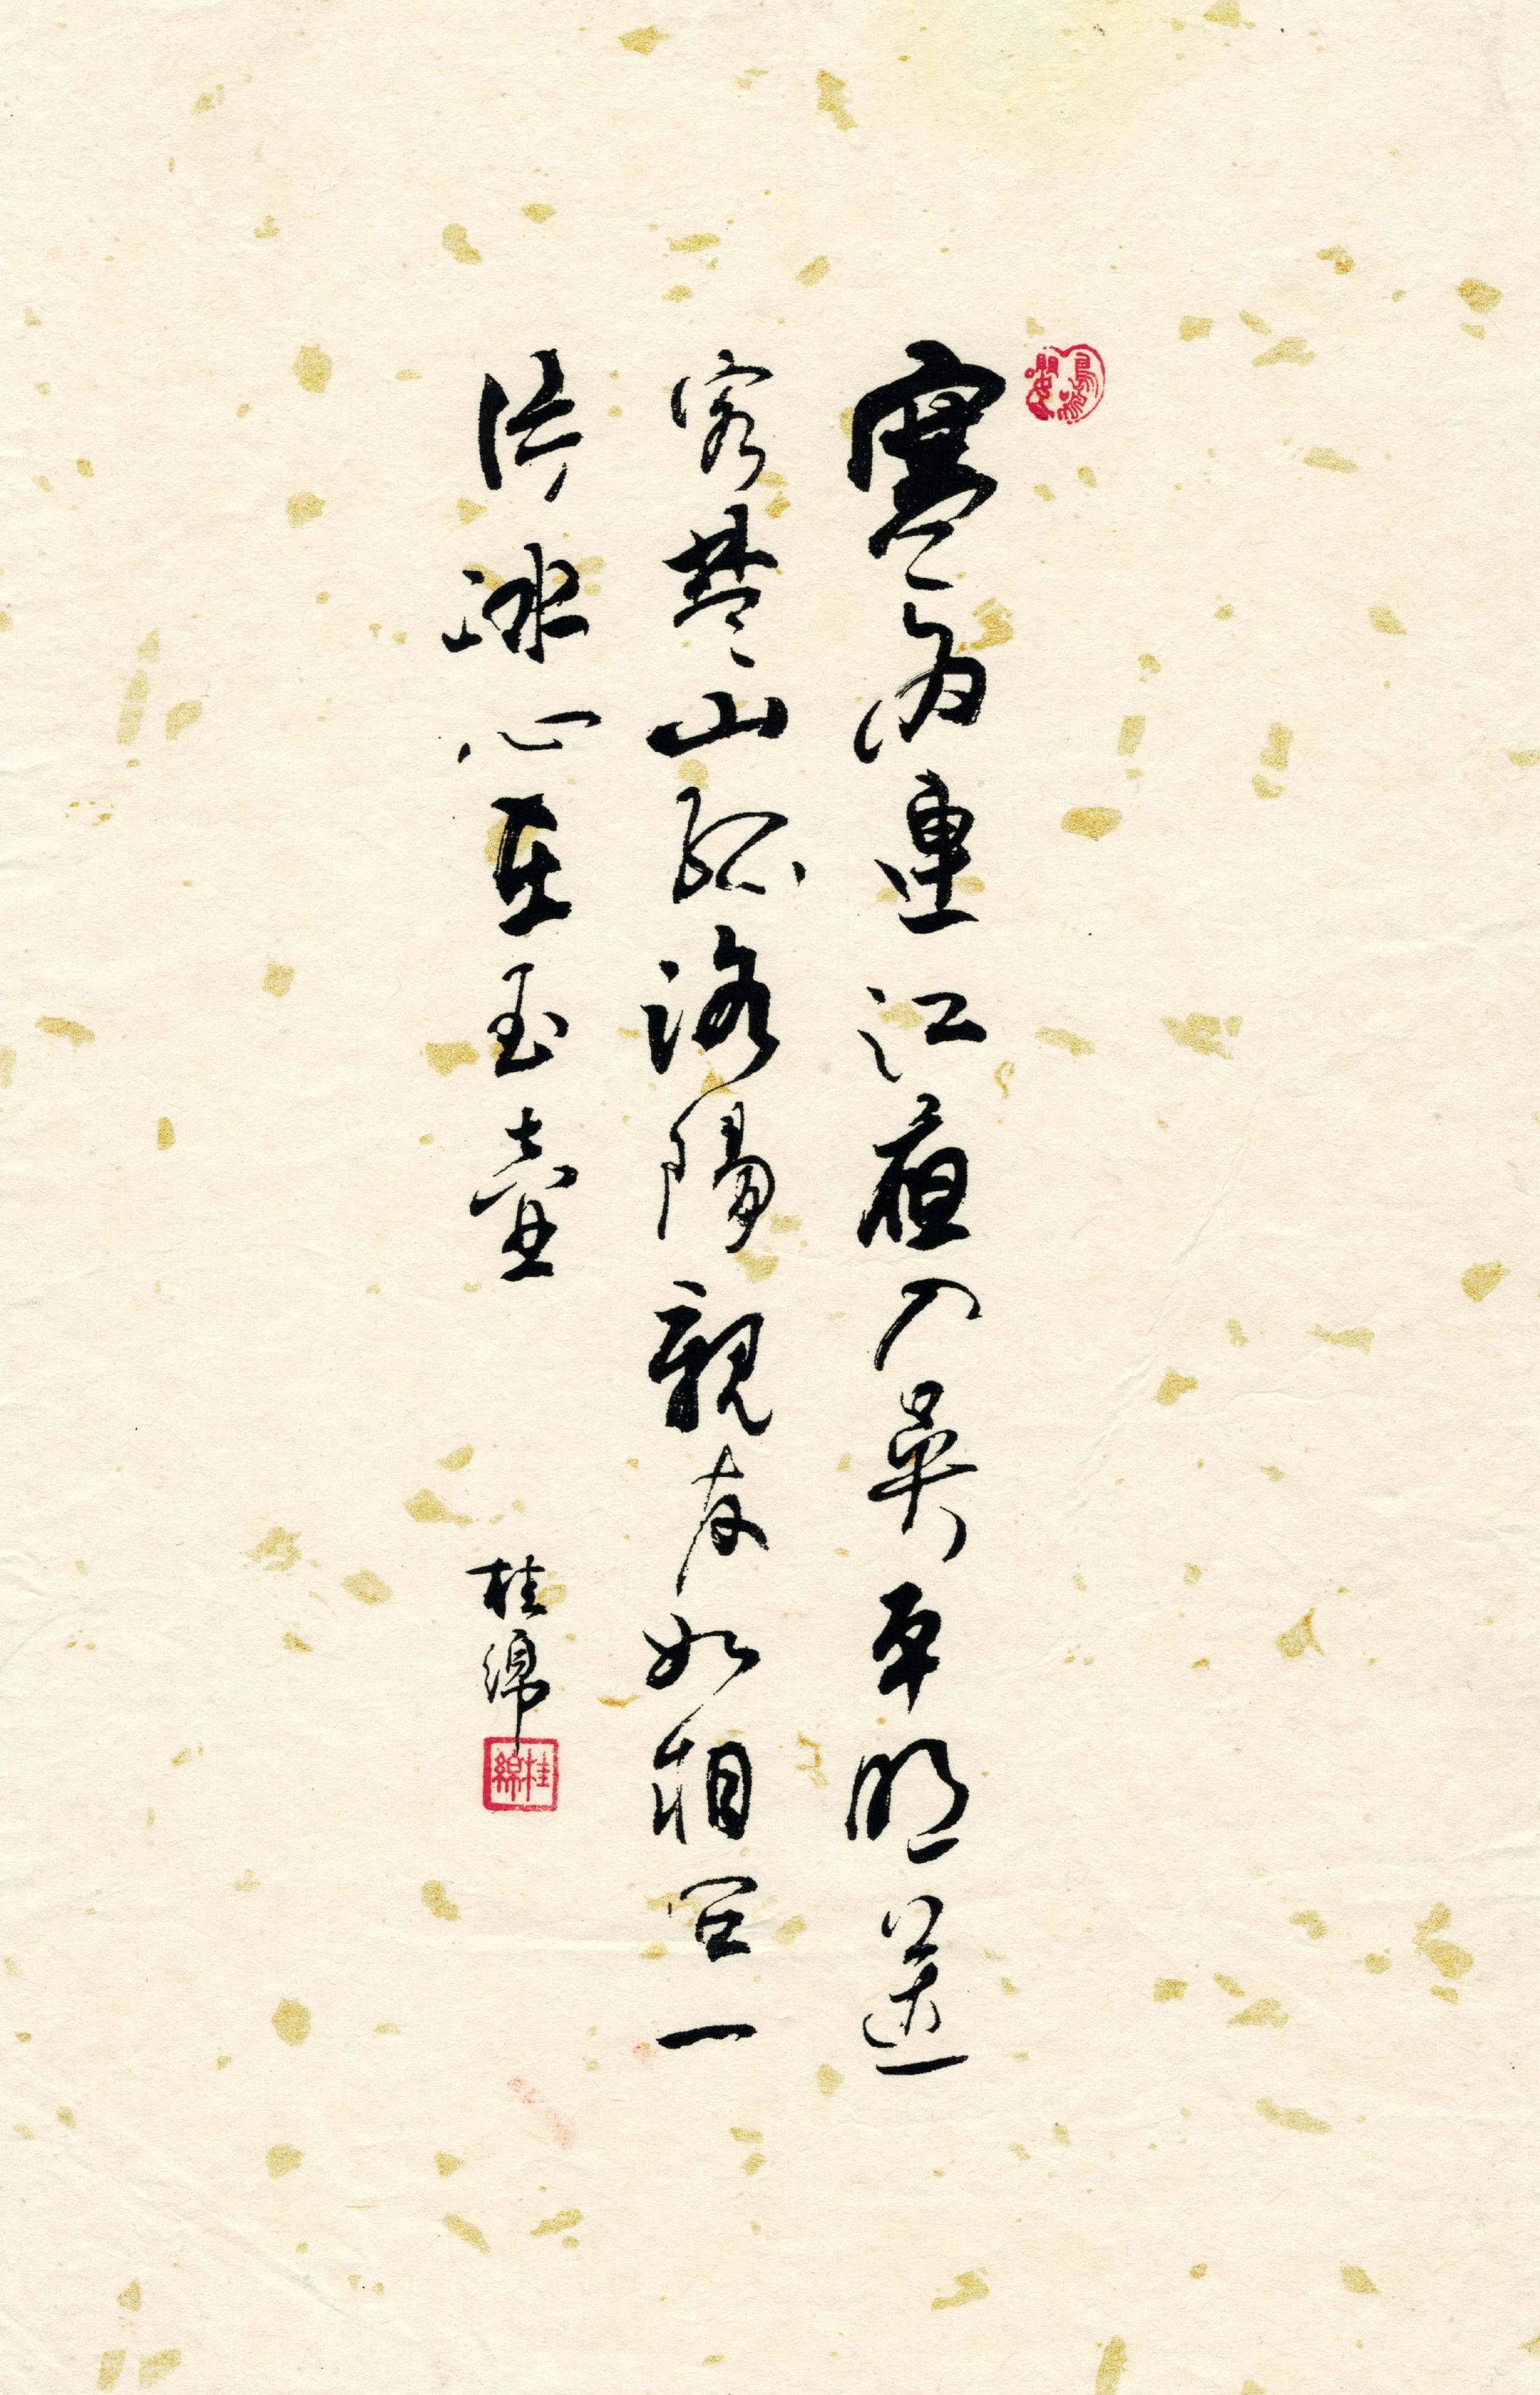 寒雨連江夜入吳平明送
客楚山孤洛陽親友如相問一
片冰心在玉壺
桂綿
桂綿